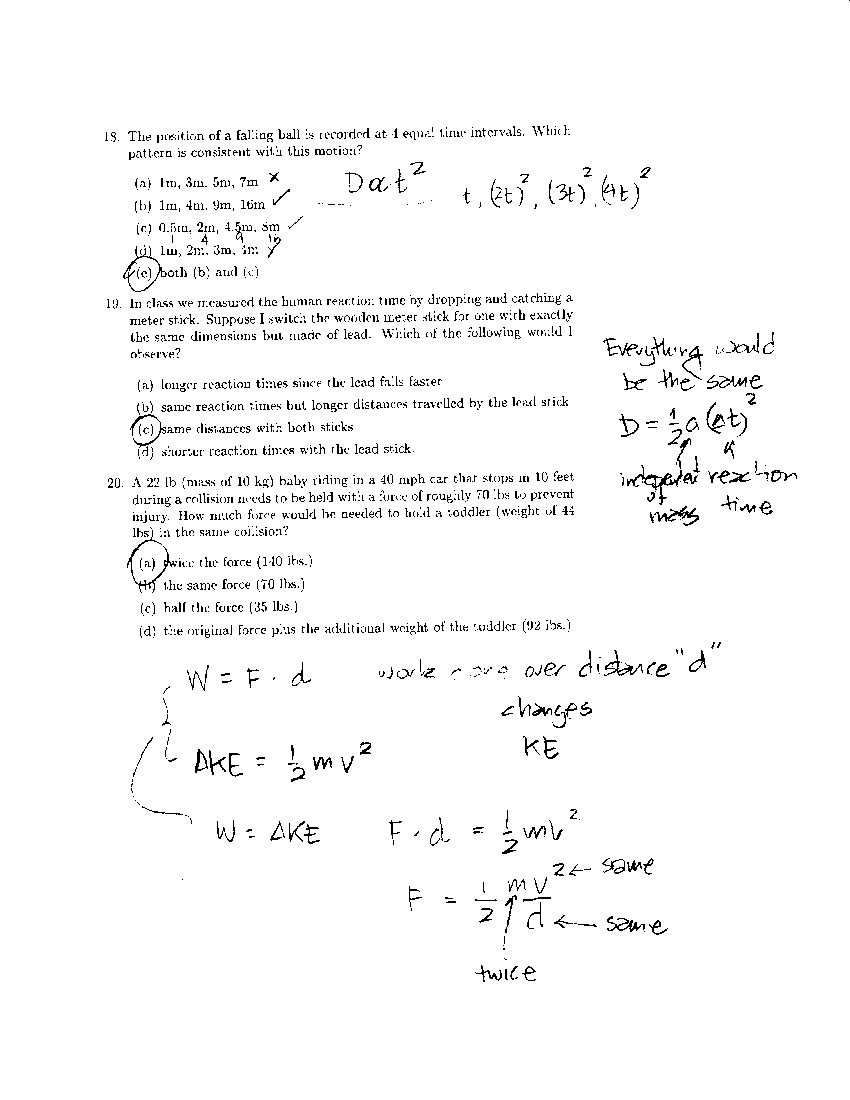 18. The position of a falling ball is recorded at 4 equal time intervals. Which
pattern is consistent with this motion?
(a) 1m, 3m, 5m, 7m ✗
(b) 1m, 4m, 9m, 16m ✓
(c) 0.5m, 2m, 4.5m, 8m ✓
1 4 9 16
(d) 1m, 2m, 3m, 4m
(e) both (b) and (c)
D α t²
t, (2t)², (3t)², (4t)²
19. In class we measured the human reaction time by dropping and catching a
meter stick. Suppose I switch the wooden meter stick for one with exactly
the same dimensions but made of lead. Which of the following would I
observe?
(a) longer reaction times since the lead falls faster
(b) same reaction times but longer distances travelled by the lead stick
(c) same distances with both sticks
(d) shorter reaction times with the lead stick.
Everything would
be the same
D = ½ a (Δt)²
reaction
of
mass time
20. A 22 lb (mass of 10 kg) baby riding in a 40 mph car that stops in 10 feet
during a collision needs to be held with a force of roughly 70 lbs to prevent
injury. How much force would be needed to hold a toddler (weight of 44
lbs) in the same collision?
(a) twice the force (140 lbs.)
(b) the same force (70 lbs.)
(c) half the force (35 lbs.)
(d) the original force plus the additional weight of the toddler (92 lbs.)
W = F · d work over distance "d"
changes
KE
ΔKE = ½ m v²
W = ΔKE F · d = ½ mv²
F = ½ mv²/d
2 ← same
← same
twice